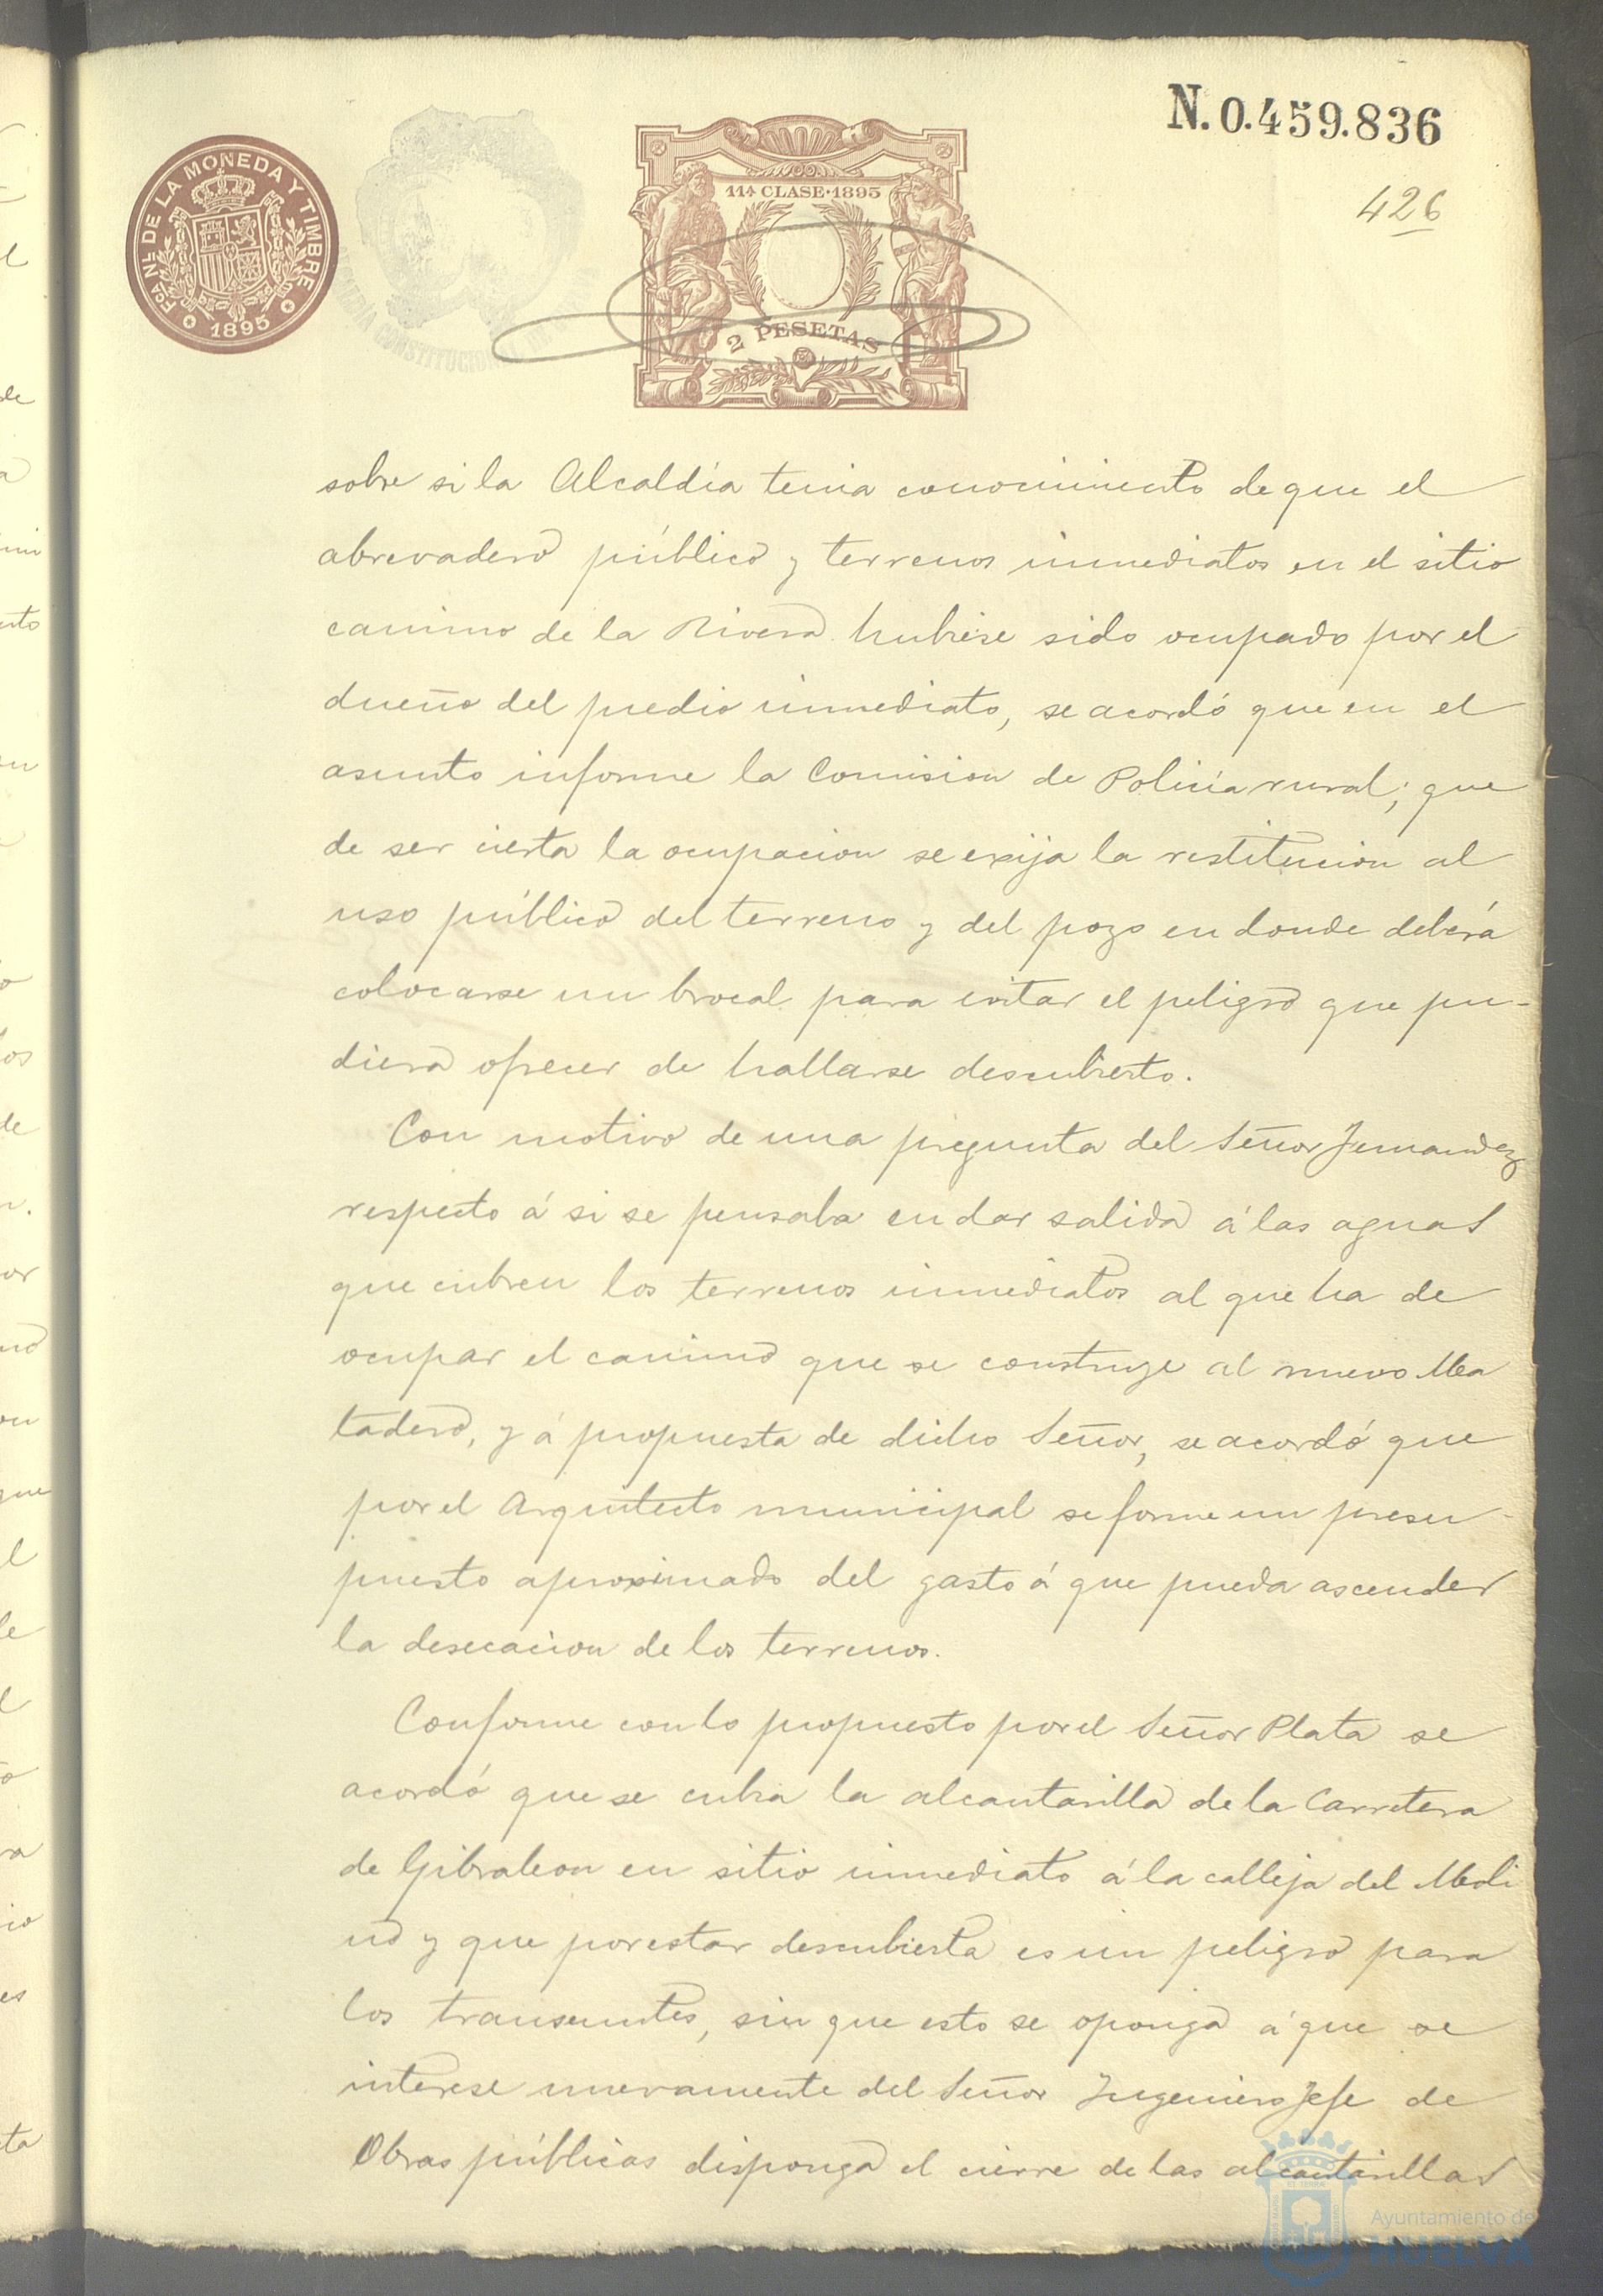 N. 0.459.836
426
FCA. NL. DE LA MONEDA Y TIMBRE
1895
11ª CLASE · 1895
2 PESETAS
sobre si la Alcaldía tenia conocimiento de que el
abrevadero público y terrenos inmediatos en el sitio
camino de la Rivera hubiese sido ocupado por el
dueño del predio inmediato, se acordó que en el
asunto informe la Comision de Policía rural; que
de ser cierta la ocupacion se exija la restitucion al
uso público del terreno y del pozo en donde deberá
colocarse un brocal para evitar el peligro que pu-
diera ofrecer de hallarse descubierto.
Con motivo de una pregunta del Señor Fernandez
respecto á si se pensaba en dar salida á las aguas
que cubren los terrenos inmediatos al que ha de
ocupar el camino que se construye al nuevo Ma
tadero, y á propuesta de dicho Señor, se acordó que
por el Arquitecto municipal se forme un presu-
puesto aproximado del gasto á que pueda ascender
la desecacion de los terrenos.
Conforme con lo propuesto por el Señor Plata se
acordó que se cubra la alcantarilla de la Carretera
de Gibraleon en sitio inmediato á la calleja del Moli
no y que por estar descubierta es un peligro para
los transeuntes, sin que esto se oponga á que se
interese nuevamente del Señor Ingeniero Jefe de
Obras públicas disponga el cierre de las alcantarillas
Ayuntamiento de
HUELVA